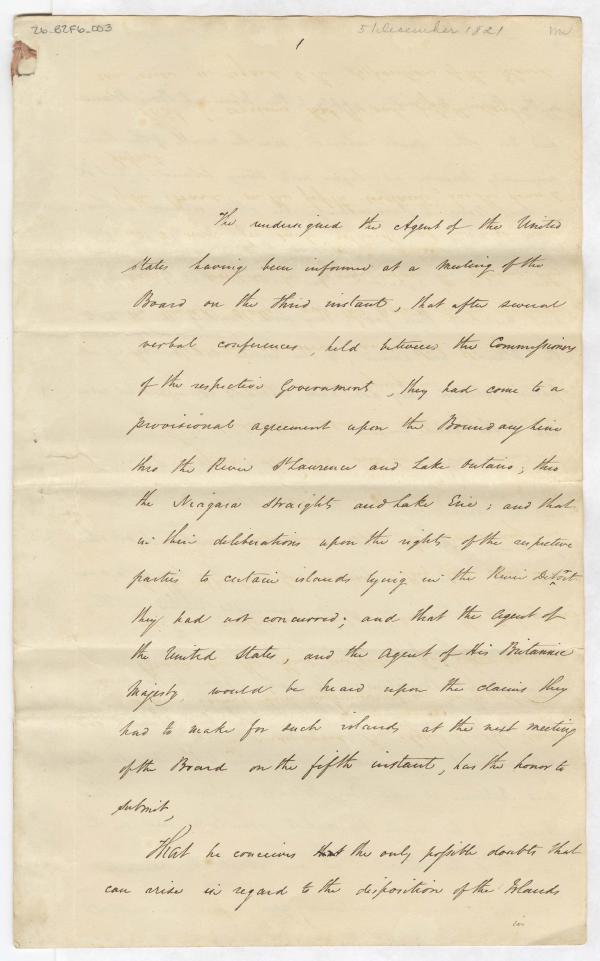 26-B2F6-003
5 December 1821
1
The undersigned the Agent of the United
States having been informed at a meeting of the
Board on the third instant, that after several
verbal conferences, held between the Commissioners
of the respective Governments, they had come to a
provisional agreement upon the Boundary line
thro the River St Lawrence and Lake Ontario; thro
the Niagara straights and Lake Erie; and that
in their deliberations upon the rights of the respective
parties to certain islands lying in the River Detroit
they had not concurred; and that the Agent of
the United States, and the Agent of His Britannic
Majesty would be heard upon the claims they
had to make for such islands at the next meeting
of the Board on the fifth instant, has the honor to
submit,
That he conceives that the only possible doubts that
can arise in regard to the disposition of the Islands
in